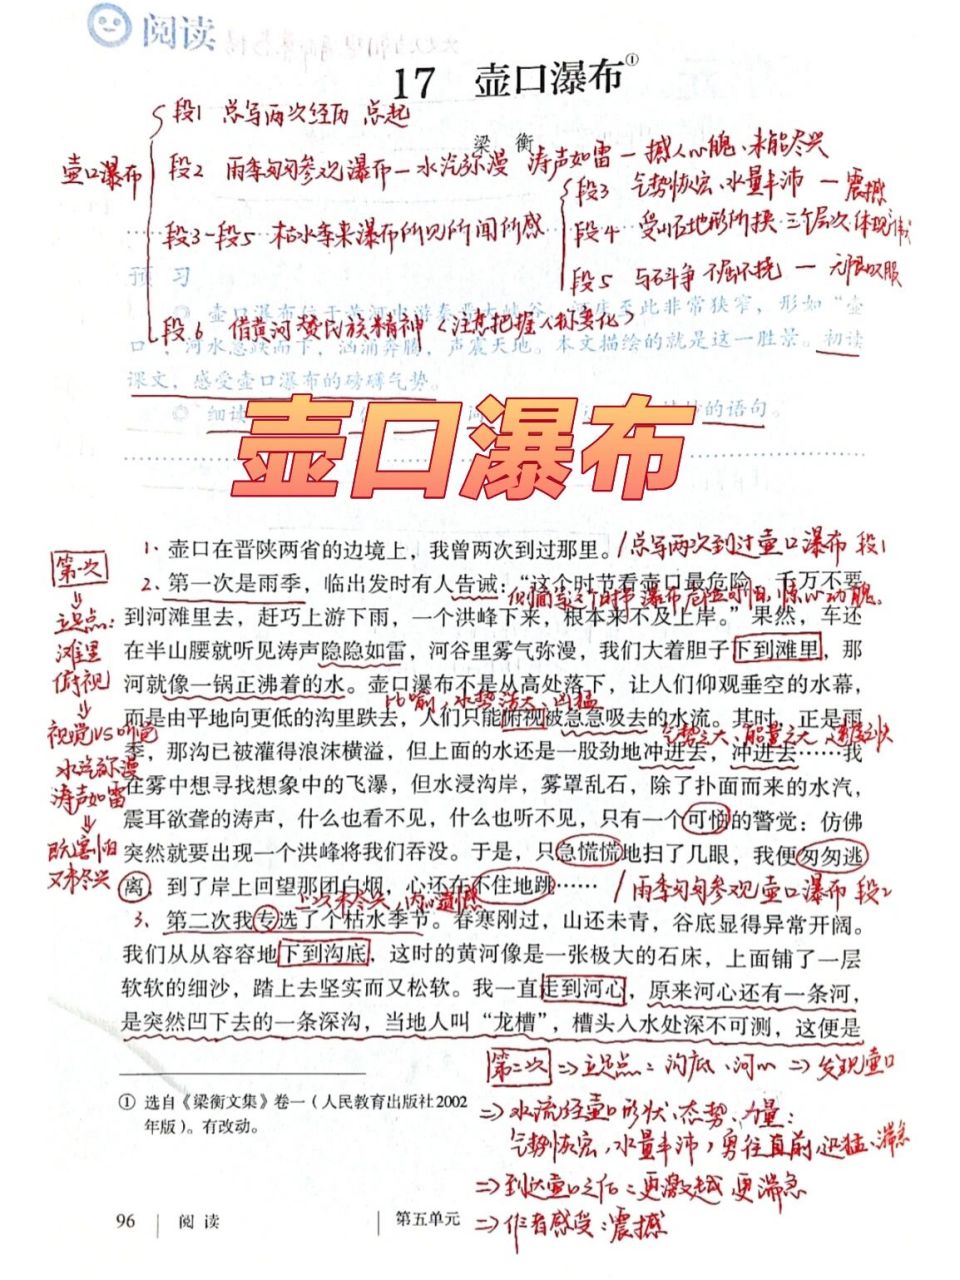 阅读
17 壶口瀑布①
段1 总写两次经历 总起
梁衡
壶口瀑布
段2 雨季匆匆参观瀑布—水汽弥漫 涛声如雷—撼人心魄、未能尽兴
段3 气势恢宏、水量丰沛 — 震撼
段3-段5 枯水季来瀑布所见所闻所感
段4 受山石地形所挟 三个层次体现
段5 与石斗争 不屈不挠 — 无限叹服
预习
段6 借黄河赞民族精神(注意把握人称变化)
河水急跌而下，汹涌奔腾，声震天地。本文描绘的就是这一胜景。初读
课文，感受壶口瀑布的磅礴气势。
◎ 细读 的语句。
壶口瀑布
1、壶口在晋陕两省的边境上，我曾两次到过那里。/总写两次到过壶口瀑布 段1
第一次
2、第一次是雨季，临出发时有人告诫：“这个时节看壶口最危险，千万不要
侧面写这个时节瀑布危险可怕，惊心动魄。
到河滩里去，赶巧上游下雨，一个洪峰下来，根本来不及上岸。”果然，车还
立足点：
滩里
俯视
在半山腰就听见涛声隐隐如雷，河谷里雾气弥漫，我们大着胆子下到滩里，那
河就像一锅正沸着的水。壶口瀑布不是从高处落下，让人们仰观垂空的水幕，
比喻，水势浩大、凶猛
而是由平地向更低的沟里跌去，人们只能俯视被急急吸去的水流。其时，正是雨
视觉VS听觉
气势之大、能量之大、速度之快
季，那沟已被灌得浪沫横溢，但上面的水还是一股劲地冲进去，冲进去……我
水汽弥漫
涛声如雷
在雾中想寻找想象中的飞瀑，但水浸沟岸，雾罩乱石，除了扑面而来的水汽，
震耳欲聋的涛声，什么也看不见，什么也听不见，只有一个可怕的警觉：仿佛
既害怕
又未尽兴
突然就要出现一个洪峰将我们吞没。于是，只急慌慌地扫了几眼，我便匆匆逃
离，到了岸上回望那团白烟，心还在不住地跳…… /雨季匆匆参观壶口瀑布 段2
上次未尽兴，内心遗憾
3、第二次我专选了个枯水季节。春寒刚过，山还未青，谷底显得异常开阔。
我们从从容容地下到沟底，这时的黄河像是一张极大的石床，上面铺了一层
软软的细沙，踏上去坚实而又松软。我一直走到河心，原来河心还有一条河，
是突然凹下去的一条深沟，当地人叫“龙槽”，槽头入水处深不可测，这便是
第二次⇒立足点：沟底、河心⇒发现壶口
⇒水流经壶口形状、态势、力量：
气势恢宏，水量丰沛，勇往直前，迅猛、湍急
⇒到达壶口之后：更激越 更湍急
⇒作者感受：震撼
① 选自《梁衡文集》卷一（人民教育出版社2002
年版）。有改动。
96 | 阅读 | 第五单元